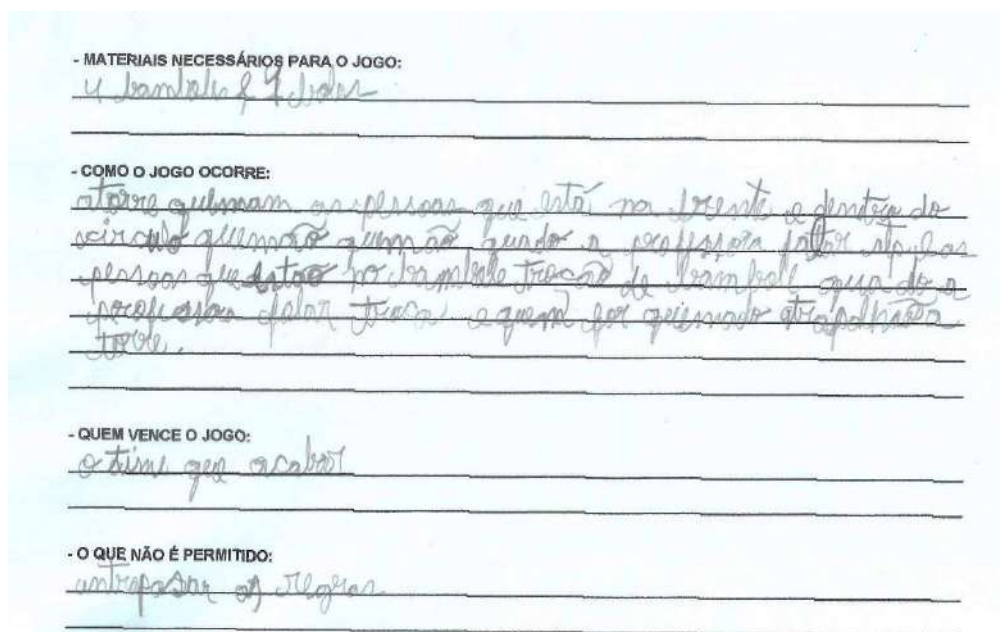 - MATERIAIS NECESSÁRIOS PARA O JOGO:
4 bambole
- COMO O JOGO OCORRE:
a torre queimam as pessoas que está na frente e dentro do
circulo queimão a professora falar
pessoas que estão no bambole trocão de bambole quado a
professora falar troca e quem for queimado atrapalha a
torre.
- QUEM VENCE O JOGO:
o time que acabar
- O QUE NÃO É PERMITIDO:
as regras